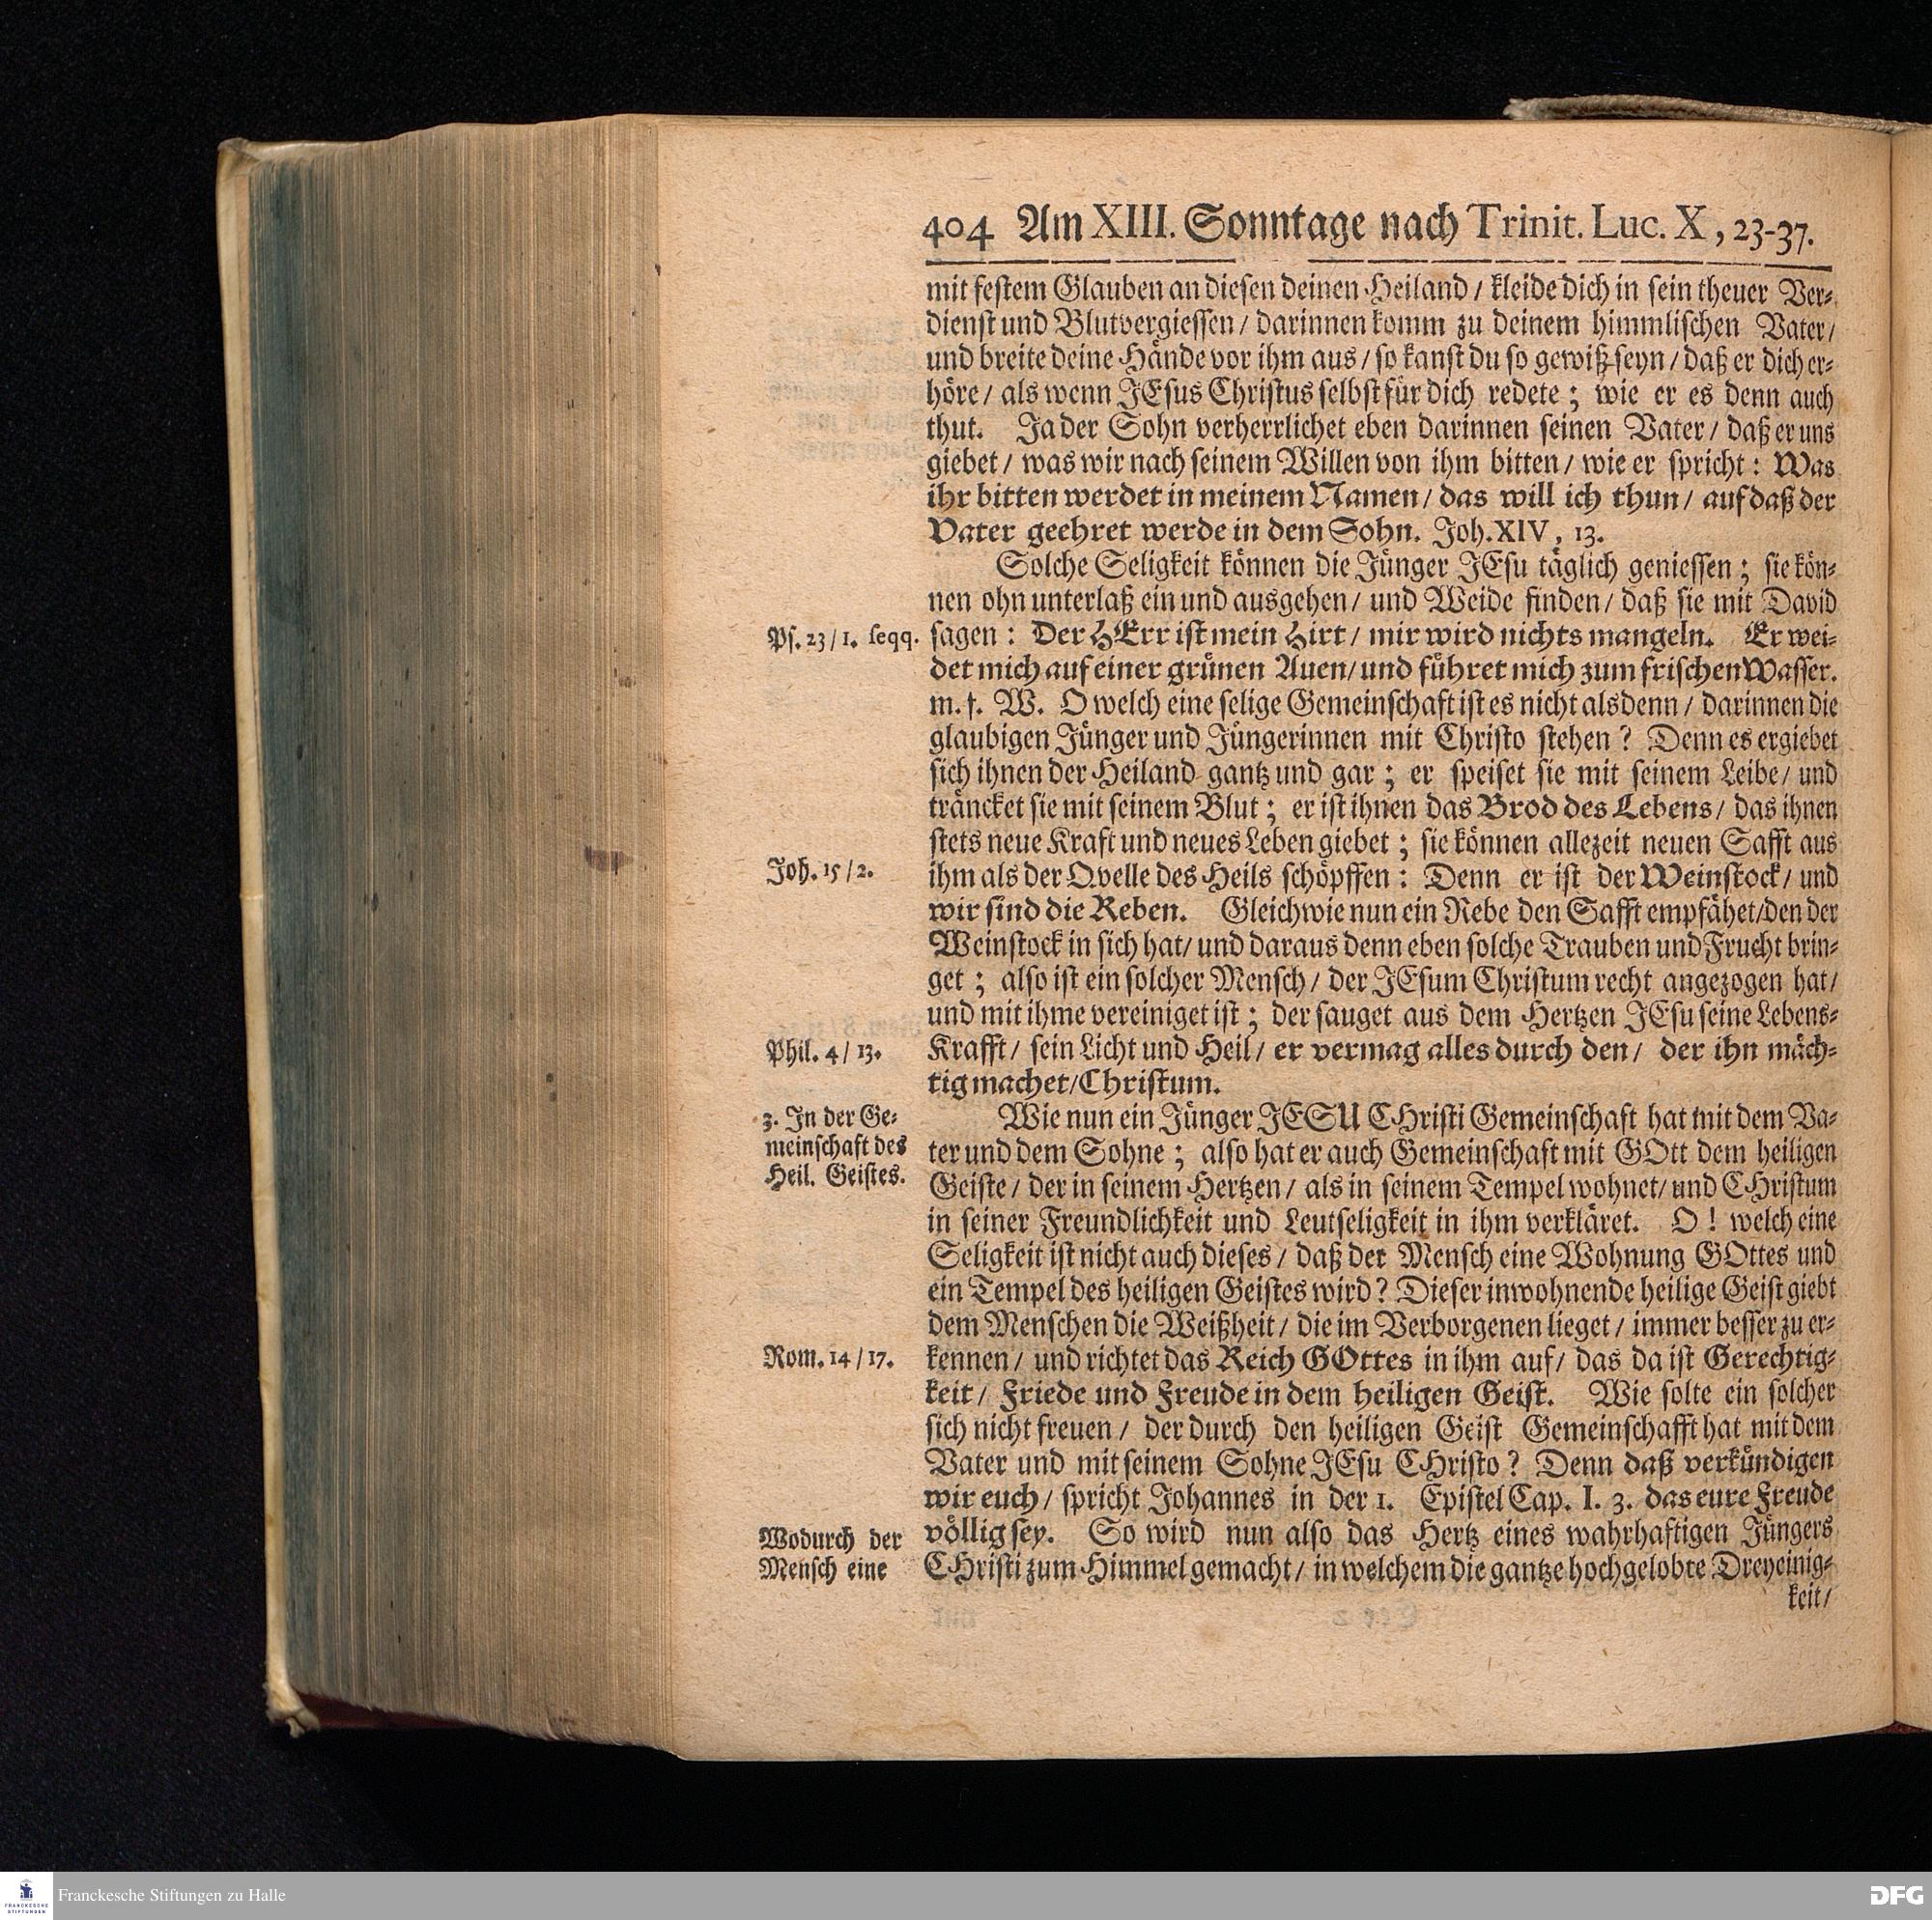 404 Am XIII. Sonntage nach Trinit. Luc. X, 23-37.
mit festem Glauben an diesen deinen Heiland / kleide dich in sein theuer Ver-
dienst und Blutvergiessen / darinnen komm zu deinem himmlischen Vater /
und breite deine Hände vor ihm aus / so kanst du so gewiß seyn / daß er dich er-
höre / als wenn JEsus Christus selbst für dich redete ; wie er es denn auch
thut. Ja der Sohn verherrlichet eben darinnen seinen Vater / daß er uns
giebet / was wir nach seinem Willen von ihm bitten / wie er spricht : Was
ihr bitten werdet in meinem Namen / das will ich thun / auf daß der
Vater geehret werde in dem Sohn. Joh. XIV, 13.
Solche Seligkeit können die Jünger JEsu täglich geniessen ; sie kön-
nen ohn unterlaß ein und ausgehen / und Weide finden / daß sie mit David
Ps. 23 / 1. seqq.
sagen : Der HErr ist mein Hirt / mir wird nichts mangeln. Er wei-
det mich auf einer grünen Auen / und führet mich zum frischen Wasser.
m. f. W. O welch eine selige Gemeinschaft ist es nicht alsdenn / darinnen die
glaubigen Jünger und Jüngerinnen mit Christo stehen ? Denn es ergiebet
sich ihnen der Heiland gantz und gar ; er speiset sie mit seinem Leibe / und
träncket sie mit seinem Blut ; er ist ihnen das Brod des Lebens / das ihnen
stets neue Kraft und neues Leben giebet ; sie können allezeit neuen Safft aus
Joh. 15 / 2.
ihm als der Qvelle des Heils schöpffen : Denn er ist der Weinstock / und
wir sind die Reben. Gleichwie nun ein Rebe den Safft empfähet / den der
Weinstock in sich hat / und daraus denn eben solche Trauben und Frucht brin-
get ; also ist ein solcher Mensch / der JEsum Christum recht angezogen hat /
und mit ihme vereiniget ist ; der sauget aus dem Hertzen JEsu seine Lebens-
Phil. 4 / 13.
Krafft / sein Licht und Heil / er vermag alles durch den / der ihn mäch-
tig machet / Christum.
3. In der Ge-
meinschaft des
Heil. Geistes.
Wie nun ein Jünger JESU CHristi Gemeinschaft hat mit dem Va-
ter und dem Sohne ; also hat er auch Gemeinschaft mit GOtt dem heiligen
Geiste / der in seinem Hertzen / als in seinem Tempel wohnet / und CHristum
in seiner Freundlichkeit und Leutseligkeit in ihm verkläret. O ! welch eine
Seligkeit ist nicht auch dieses / daß der Mensch eine Wohnung GOttes und
ein Tempel des heiligen Geistes wird ? Dieser inwohnende heilige Geist giebt
dem Menschen die Weißheit / die im Verborgenen lieget / immer besser zu er-
Rom. 14 / 17.
kennen / und richtet das Reich GOttes in ihm auf / das da ist Gerechtig-
keit / Friede und Freude in dem heiligen Geist. Wie solte ein solcher
sich nicht freuen / der durch den heiligen Geist Gemeinschafft hat mit dem
Vater und mit seinem Sohne JEsu CHristo ? Denn daß verkündigen
wir euch / spricht Johannes in der 1. Epistel Cap. I. 3. das eure Freude
Wodurch der
Mensch eine
völlig sey. So wird nun also das Hertz eines wahrhaftigen Jüngers
CHristi zum Himmel gemacht / in welchem die gantze hochgelobte Dreyeinig-
keit /
Franckesche Stiftungen zu Halle
FRANCKESCHE
STIFTUNGEN
DFG